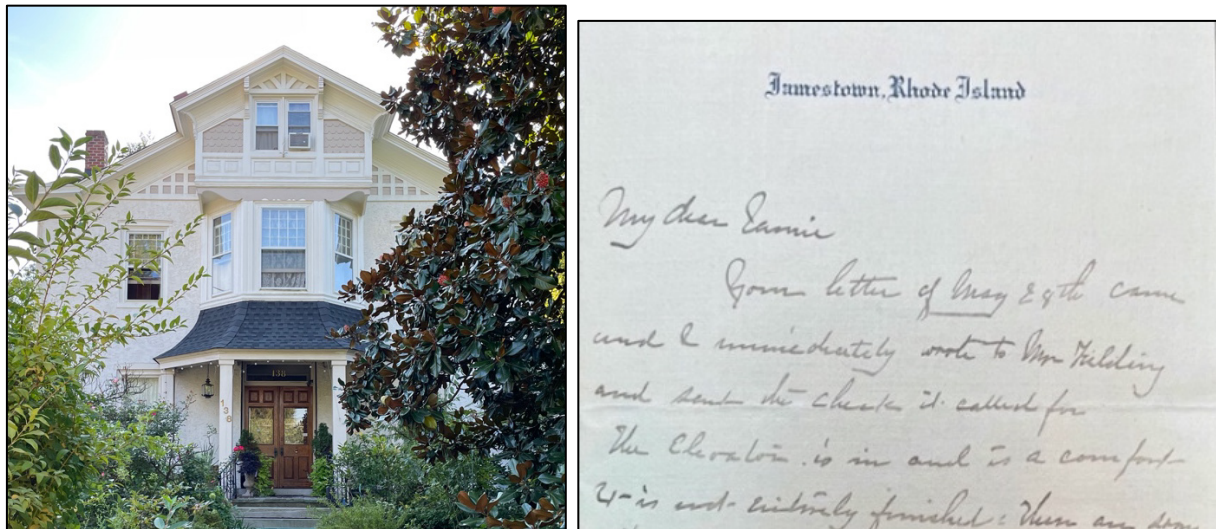 138
138
Jamestown, Rhode Island
My dear
Your letter of May 29th came
and I immediately wrote to Mr
and sent the check it called for
The Elevator is in and is a comfort
It is not entirely finished There are some